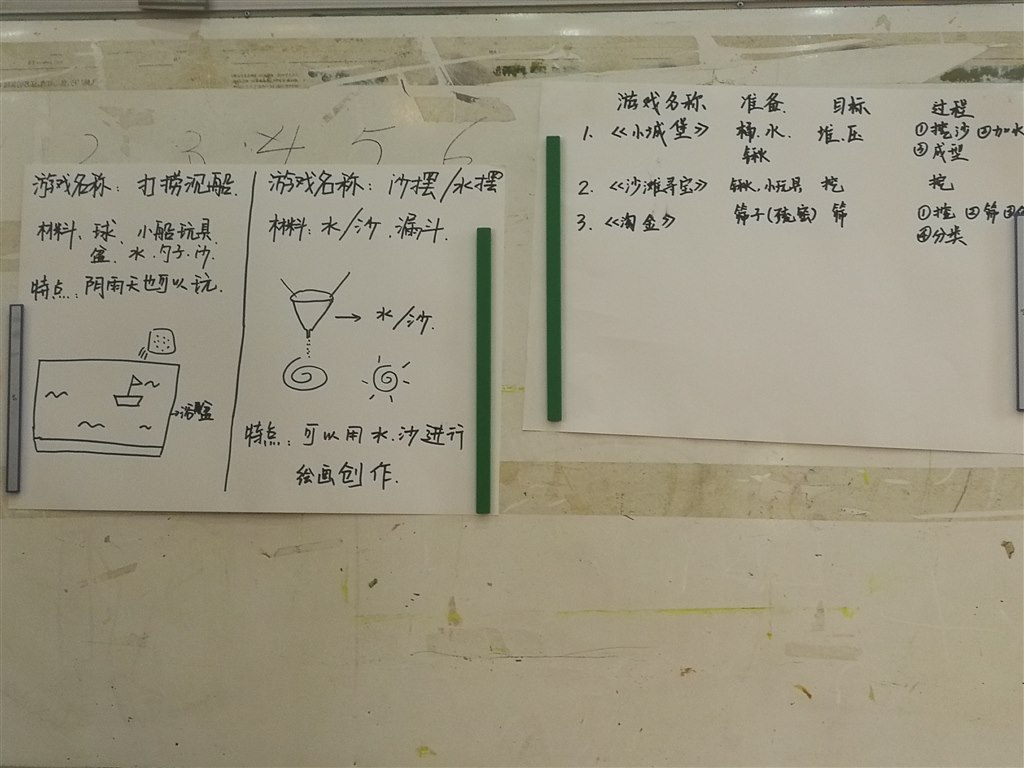 2 3 4 5 6
游戏名称：打捞沉船.
材料：球、小船玩具
盆、水.勺子.沙.
特点：阴雨天也可以玩.
浴盆
游戏名称：沙摆/水摆
材料：水/沙.漏斗.
水/沙.
特点：可以用水.沙进行
绘画创作.
游戏名称 准备. 目标 过程
1. 《小城堡》 桶.水. 堆.压 ①挖沙 ②加水
锹 ③成型
2. 《沙滩寻宝》 锹.小玩具 挖 挖
3. 《淘金》 筛子(疏密) 筛 ①挖 ②筛
④分类